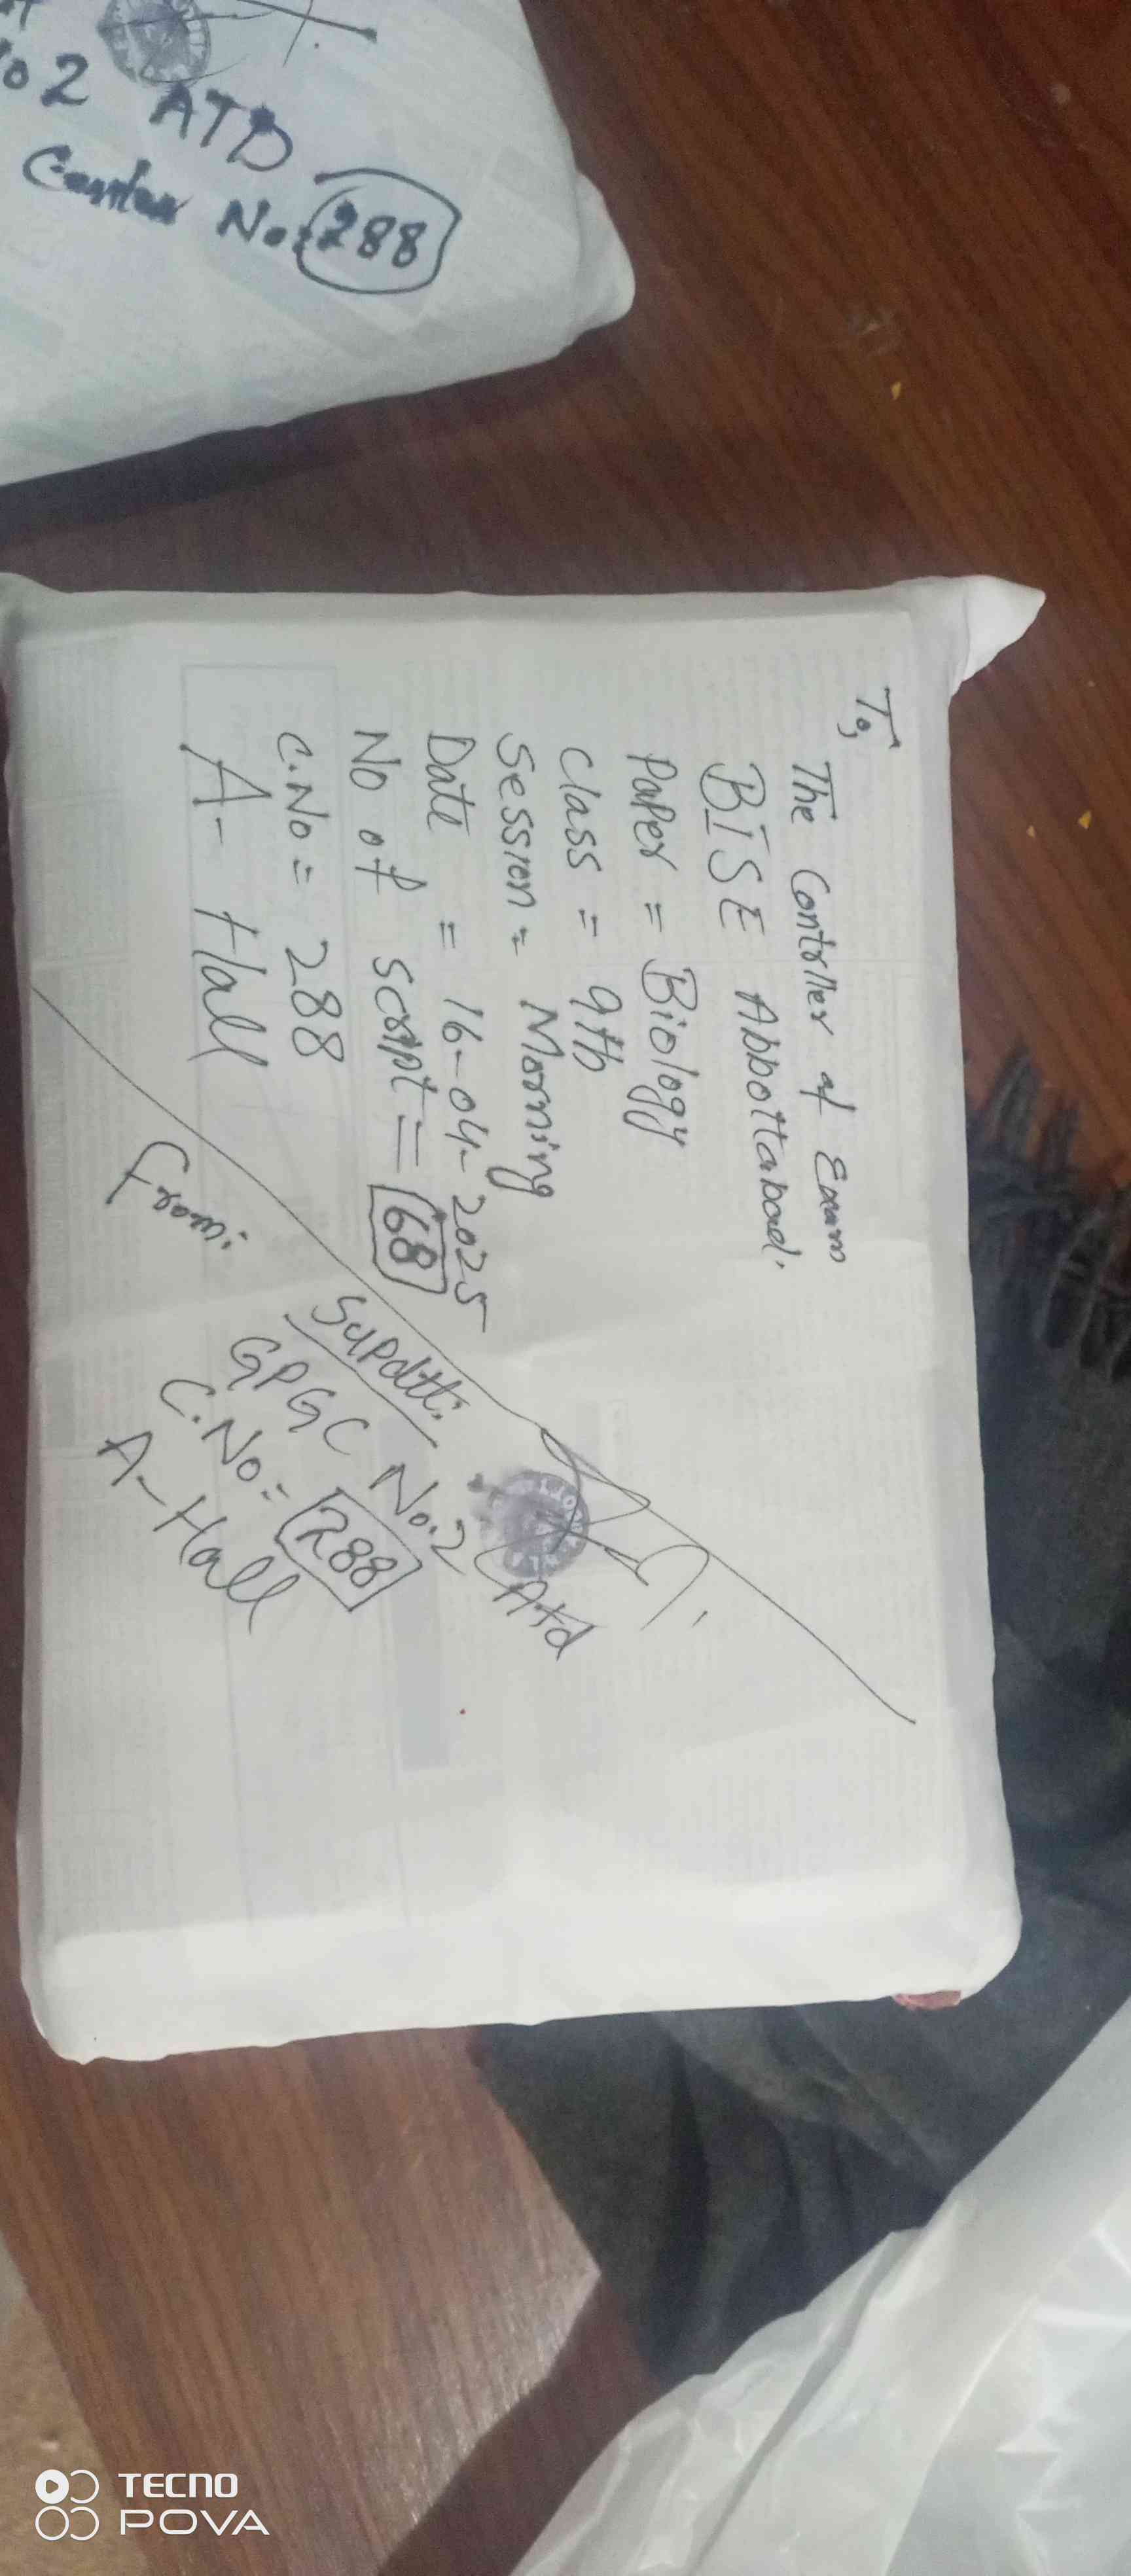 o 2 ATD
Center No: 288
To,
The Contrller of Exam
BISE Abbottabad.
Paper = Biology
Class = 9th
Session = Morning
Date = 16-04-2025
No of script = 68
C.No = 288
A- Hall
From:
Supdtt:
GPGC No.2 Atd
C.No = 288
A-Hall
TECNO
POVA